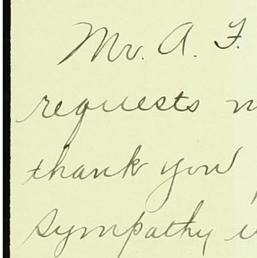 Mr. A. F.
requests
thank you
sympathy